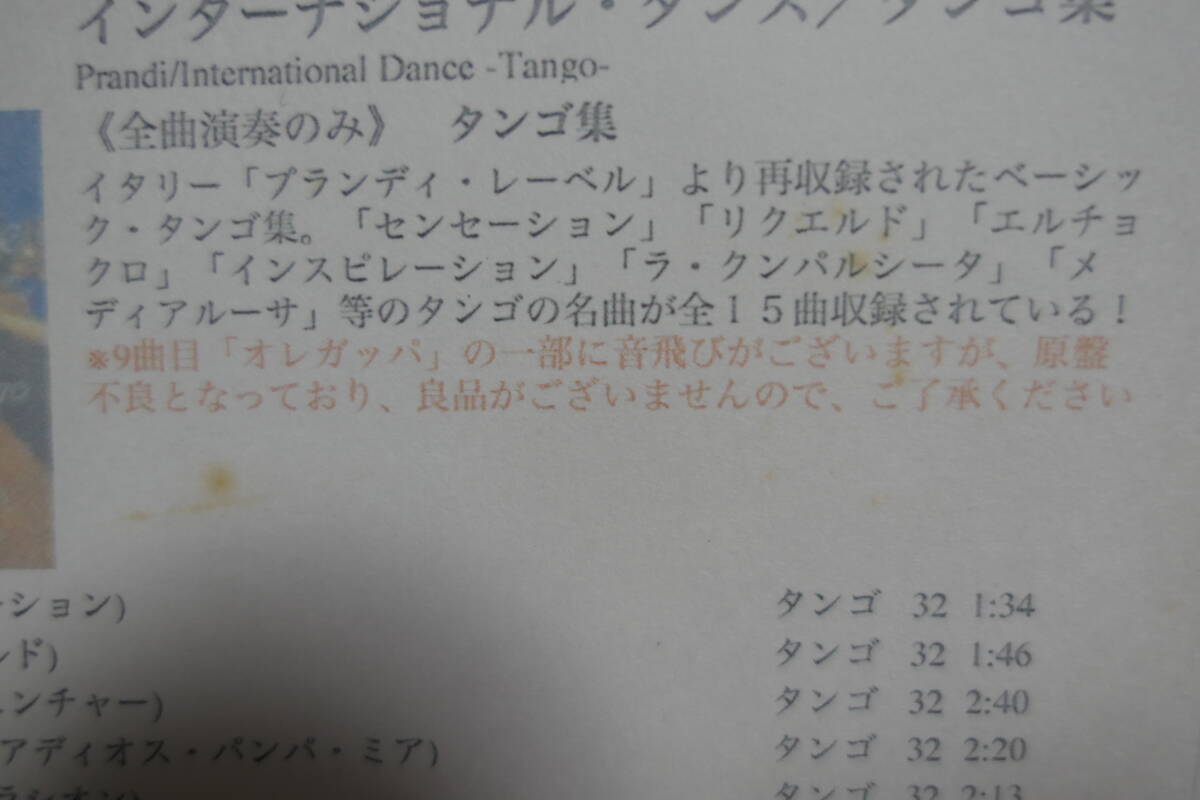 インターナショナル・ダンス／タンゴ集
Prandi/International Dance -Tango-
《全曲演奏のみ》 タンゴ集
イタリー「プランディ・レーベル」より再収録されたベーシッ
ク・タンゴ集。「センセーション」「リクエルド」「エルチョ
クロ」「インスピレーション」「ラ・クンパルシータ」「メ
ディアルーサ」等のタンゴの名曲が全１５曲収録されている！
※9曲目「オレガッパ」の一部に音飛びがございますが、原盤
不良となっており、良品がございませんので、ご了承ください
ーション) タンゴ 32 1:34
ルド) タンゴ 32 1:46
ェンチャー) タンゴ 32 2:40
アディオス・パンパ・ミア) タンゴ 32 2:20
ラシオン) タンゴ 32 2:13